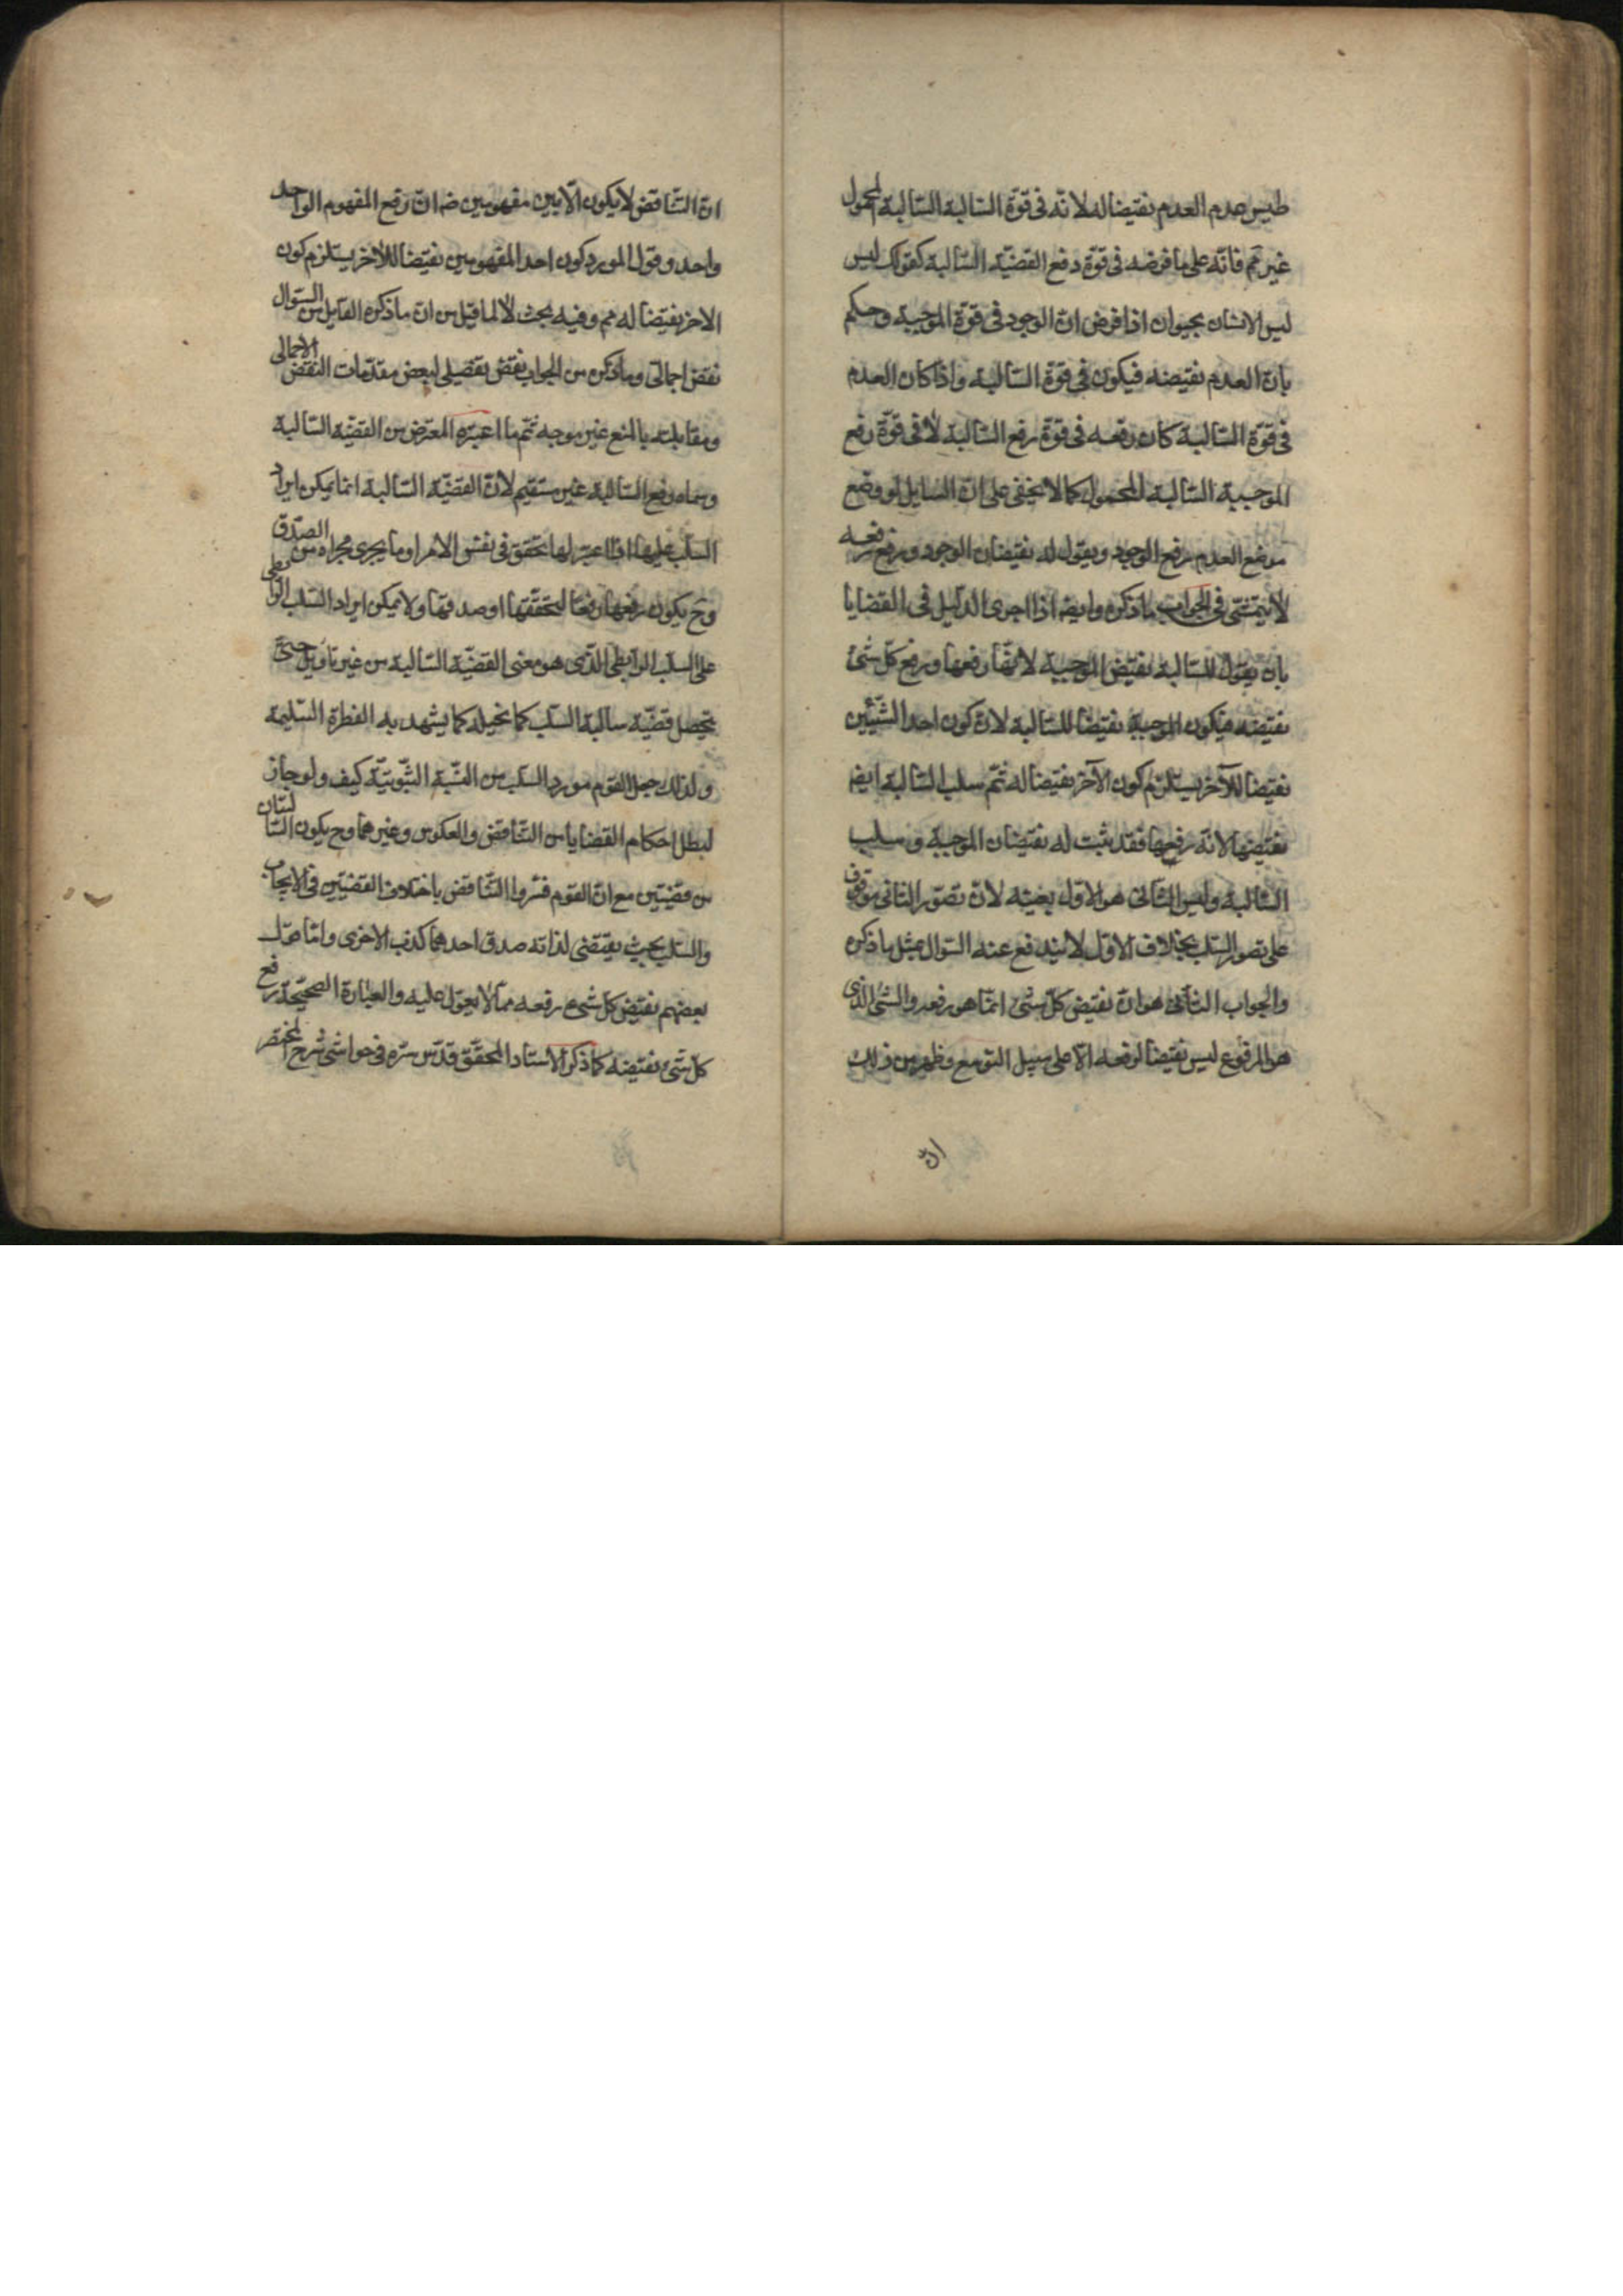 وليس عدم العدم نقيضا له لانّه فى قوّة السّالبة السّالبة المحمول
غير تم فانّه على ما فرضه فى قوّة رفع القضيّة السّالبة كقولك ليس
ليس الانسان بحيوان اذا فرض انّ الوجود فى قوّة الموجبة وحكم
بانّ العدم نقيضه فيكون فى قوّة السّالبة واذا كان العدم
فى قوّة السّالبة كان رفعه فى قوّة رفع السّالبة لا فى قوّة رفع
الموجبة السّالبة المحمول كما لا يخفى على انّ السّايل لو وضع
موضع العدم رفع الوجود ويقول له نقيضان الوجود ورفع رفعه
لا يتمشّى فى الجواب ما ذكره وايضا اذا اجرى الدّليل فى القضايا
بان يقول السّالبة نقيض الموجبة لانّها رفعها ورفع كلّ شئ
نقيضه فيكون الموجبة نقيضا للسّالبة لانّ كون احد الشّيئين
نقيضا للآخر يستلزم كون الآخر نقيضا له ثمّ سلب السّالبة ايض
نقيضها لانّه رفعها فقد ثبت له نقيضان الموجبة وسلب
السّالبة وليس الثّانى هو الاوّل بعينه لانّ تصوّر الثانى موقوف
على تصور السّلب بخلاف الاوّل لا يندفع عنه السّوال بمثل ما ذكره
والجواب الثّانى هو انّ نقيض كلّ شئ انمّا هو رفعه والشّئ الّذى
هو المرفوع ليس نقيضا لرفعه الّا على سبيل التوسع وظهر من ذلك
انّ
انّ التّناقض لا يكون الّا بين مفهومين ضه انّ رفع المفهوم الواحد
واحد وقول المورد كون احد المفهومين نقيضا للآخر يستلزم كون
الاخر نقيضا له مم وفيه بحث لا لما قيل من انّ ما ذكره القايل من السّوال
نقض اجمالىّ وما ذكره من الجواب نقض تفصيلى لبعض مقدّمات النّقض الاجمالى
ومقابلته بالمنع غير موجه ثمّ ما اعتبره المعترض من القضيّة السّالبة
وسماه رفع السّالبة غير مستقيم لانّ القضيّة السّالبة انما يمكن ايراد
السّلب عليها اذا اعتبر لها تحقق فى نفس الامر او ما يجرى مجراه من الصّدق
وح يكون رفعها رفعا لتحقّقها او صدقها ولا يمكن ايراد السّلب الرّابطى
على السلب الرابطى الّذى هو معنى القضيّة السّالبة من غير تاويل حتّى
يحصل قضيّة سالبة السّلب كما تخيله كما يشهد به الفطرة السّليمة
ولذلك جعل القوم مورد السّلب من النّسبة الثّبوتيّة كيف ولو جاز
لبطل احكام القضايا من التّناقض والعكوس وغيرهما وح يكون السّالبتان
من قضيتين مع انّ القوم فسّروا التّناقض باختلاف القضيتين فى الايجاب
والسّلب بحيث يقتضى لذاته صدق احدهما كذب الاخرى وامّا قول
بعضهم نقيض كلّ شئ رفعه ممّا لا يعوّل عليه والعبارة الصحيحة رفع
كل شئ نقيضه كما ذكر الاستاد المحقّق قدّس سّره فى حواشى شرح المختصر